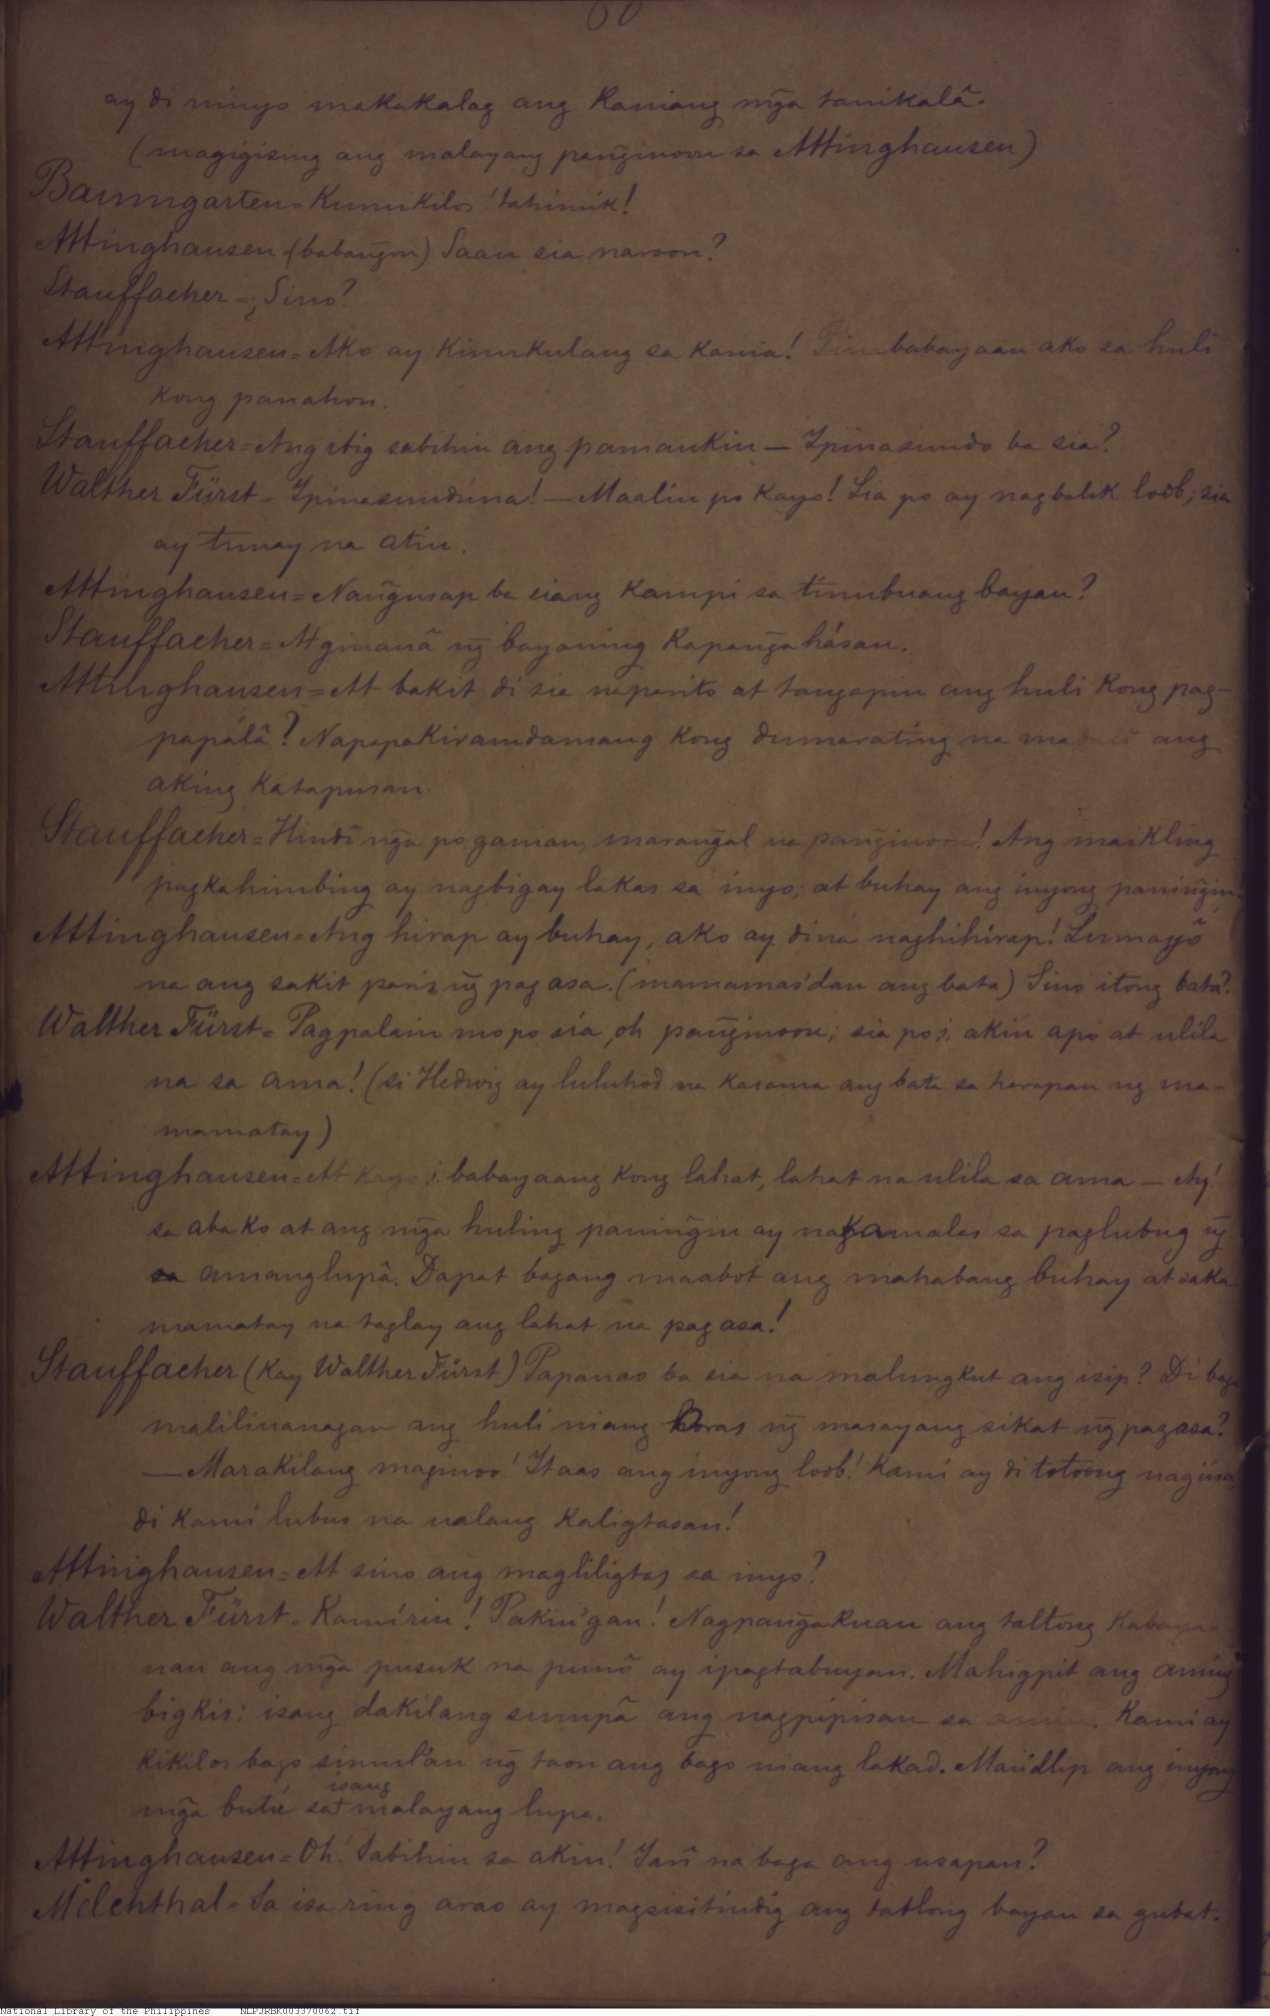 60
ay di ninyo makakalag ang kaniang mg̃a tanikalâ.
(magigising ang malayang pang̃inoon sa Attinghausen)
Baumgarten = Kumikilos ¡tahimik!
Attinghausen (babang̃on) Saan sia naroon?
Stauffacher = ¿Sino?
Attinghausen = Ako ay kinukulang sa kania! babayaan ako sa huli
kong panahon.
Stauffacher = Ang ibig sabihin ang pamankin — Ipinasundo ba sia?
Walther Fürst = Ipinasundúna! — Maaliu po kayo! Sia po ay nagbalik loób; sia
ay tunay na atin.
Attinghausen = Nang̃usap ba siang kampi sa tinubuang bayan?
Stauffacher = At ginauâ ng̃ bayaning kapang̃ahásan.
Attinghausen = At bakit di sia naparito at tangapin ang huli kong pag-
papálâ? Napapakiramdamang kong dumarating na ang
aking katapusan.
Stauffacher = Hindî ng̃a po ganian, marang̃al na pang̃inoon! Ang maikling
pagkahimbing ay nagbigay lakas sa inyo; at buhay ang inyong paning̃in.
Attinghausen = Ang hirap ay buhay, ako ay dina naghihirap! Lumayô
na ang sakit paris ng̃ pag asa. (mamamasdan ang bata) Sino itong bata?
Walther Fürst = Pagpalain mo po sia, oh pang̃inoon; sia po'i, akin apo at ulila
na sa ama! (si Hedwig ay luluhod na kasama ang bata sa harapan ng ma-
mamatay)
Attinghausen = At kayo'i babayaang kong lahat, lahat na ulila sa ama — Ay!
sa aba ko at ang mg̃a huling paning̃in ay nakamalas sa paglubug ng̃
amang lupâ. Dapat bagang maabot ang mahabang buhay at saka
mamatay na taglay ang lahat na pag asa!
Stauffacher (kay Walther Fürst) Papanao ba sia na malungkut ang isip? Di baga
malilinanagan ang huli niang horas ng̃ masayang sikat ng̃ pag asa?
— Marakilang maginoo! Itaas ang inyong loob! Kami ay di totoong nagiisa,
di kami lubus na ualang kaligtasan!
Attinghausen = At sino ang magliligtas sa inyo?
Walther Fürst = Kamírin! Pakingan! Nagpang̃akuan ang tatlong kabaya-
nan ang mg̃a pusuk na punô ay ipagtabuyan. Mahigpit ang aming
bigkis: isang dakilang sumpâ ang nagpipisan sa amin. Kami ay
kikilos bago simulan ng̃ taon ang bago niang lakad. ang inyong
mg̃a butó sa isang malayang lupa.
Attinghausen = Oh! Sabihin sa akin! Yarî na baga ang usapan?
Melchthal = Sa isa ring arao ay magsisitindig ang tatlong bayan sa gubat.
National Library of the Philippines NLPJRBK003370062.tif